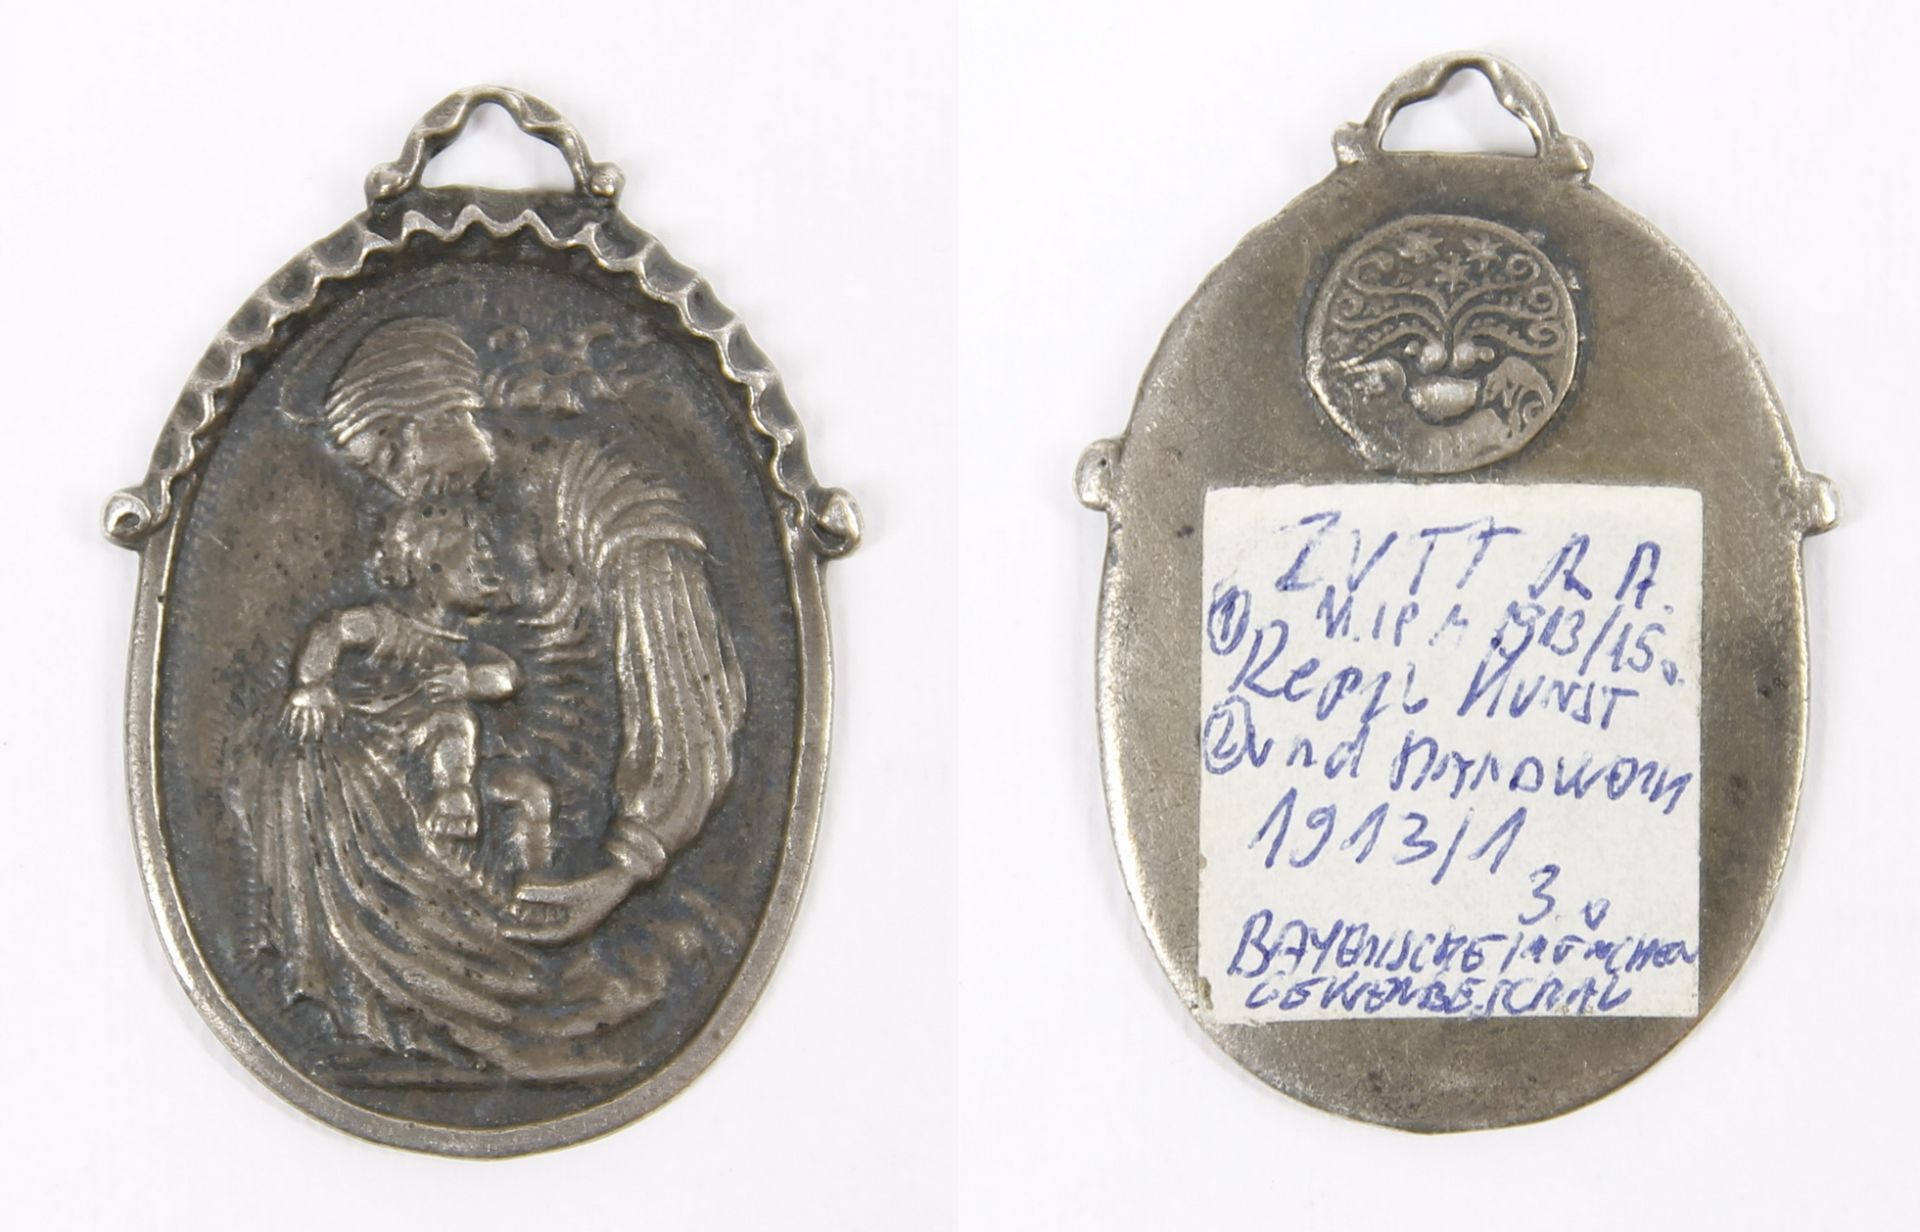 ZUTT R A.
① M.IPA 1913/15.
Repr KUNST
② und HANDWERK
1913/1
3.
BAYERISCHE MÜNCHEN
GEWERBESCHAU